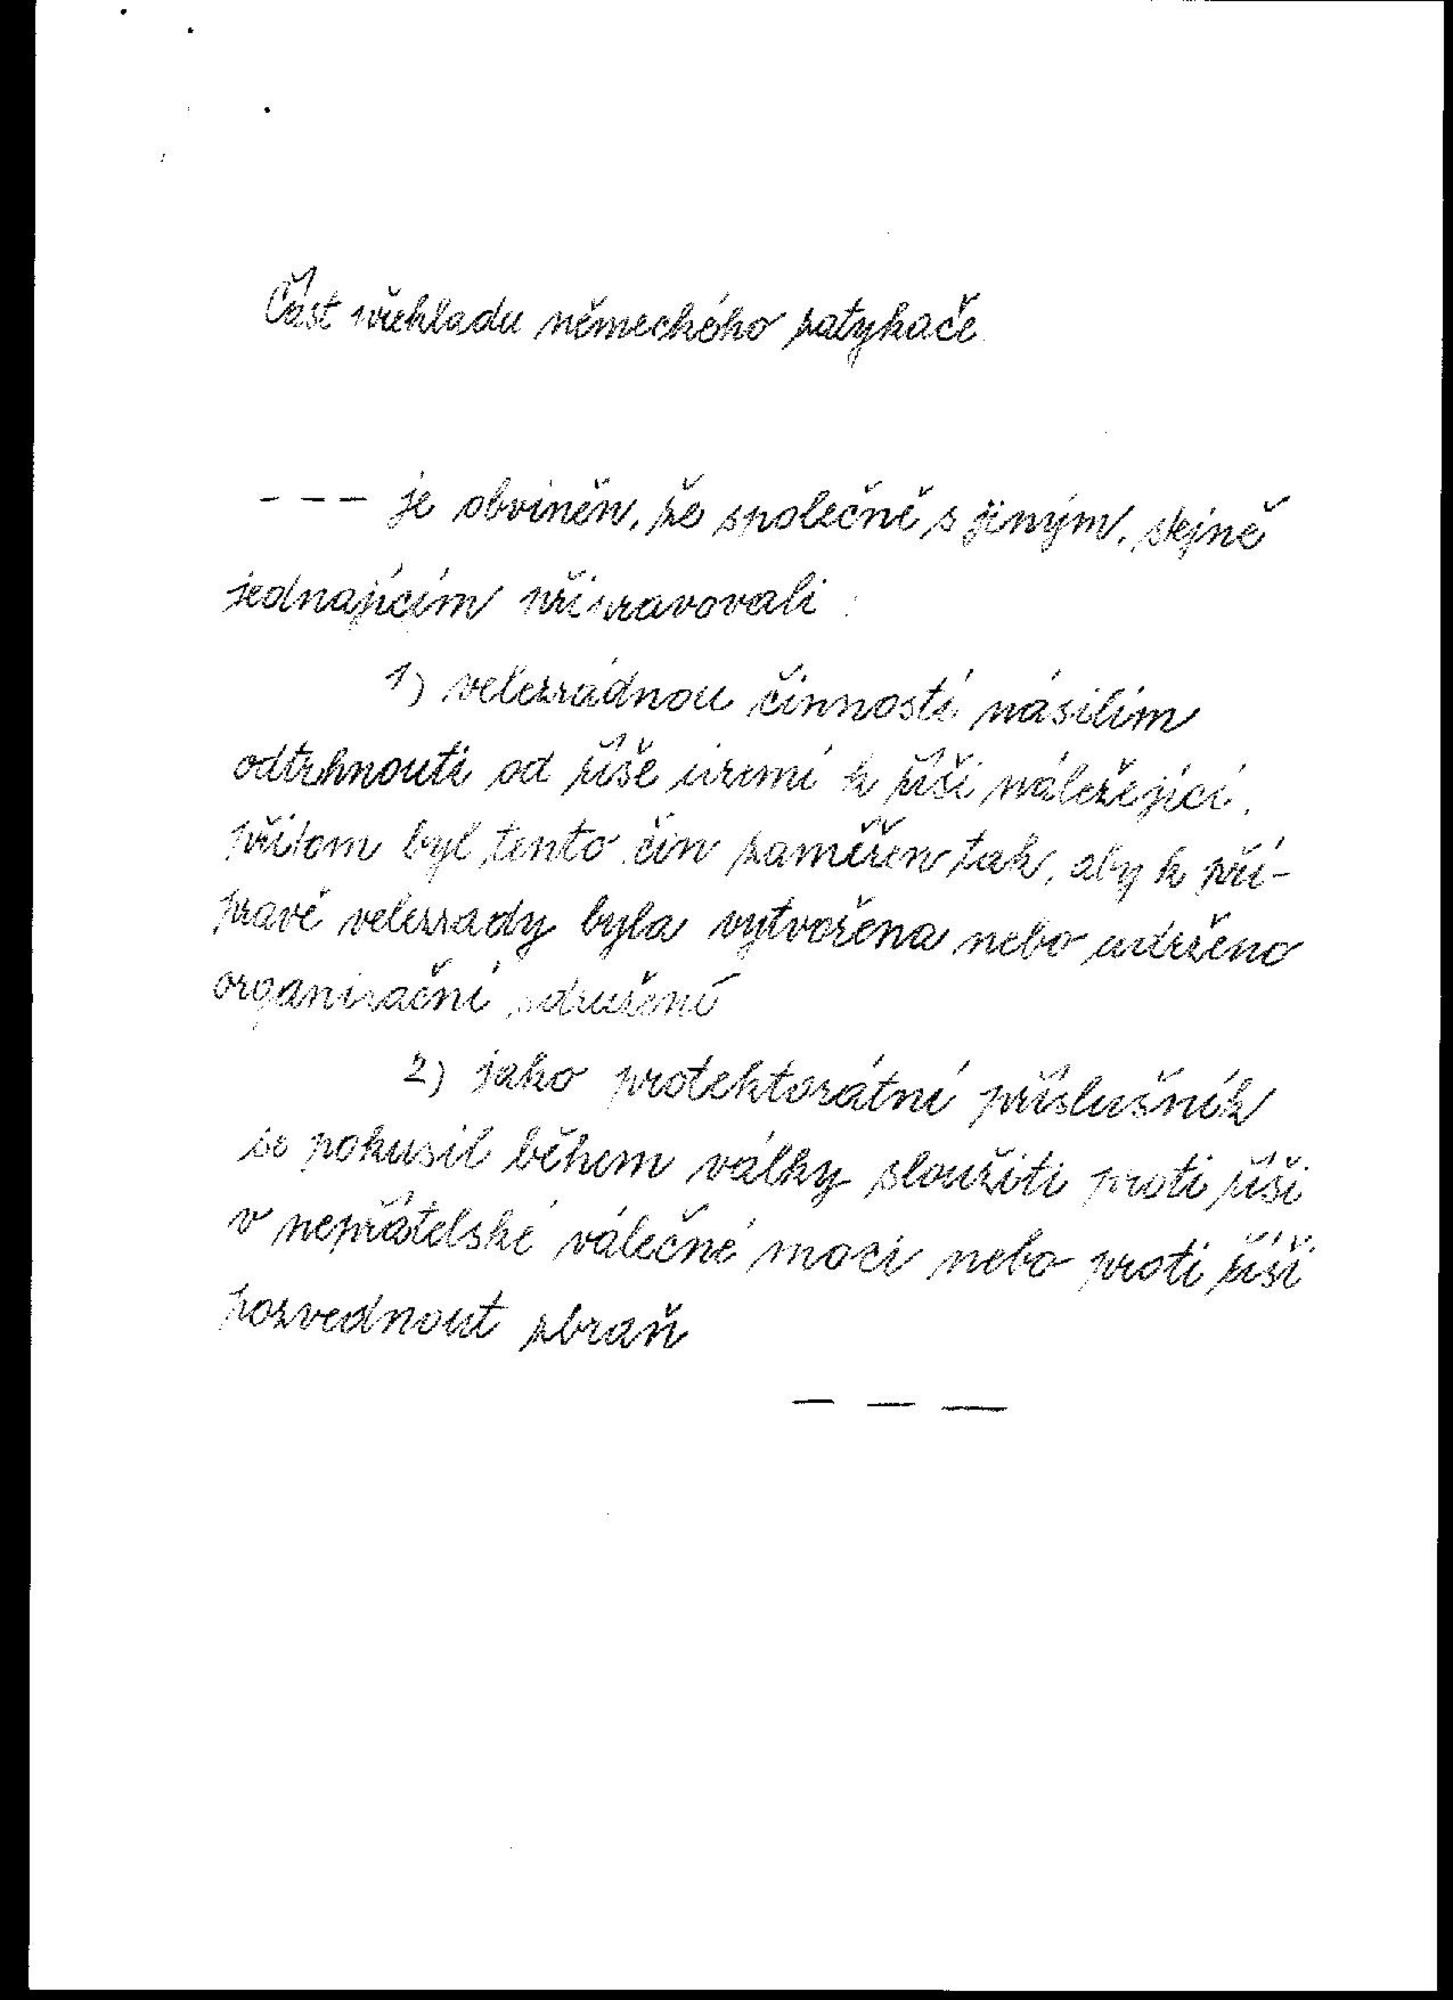 Část překladu německého zatykače
--- je obviněn, že společně s jiným, stejně
jednajícím připravovali :
1) velezrádnou činností násilím
odtrhnouti od říše území k říši náležející,
přitom byl tento čin zaměřen tak, aby k pří-
pravě velezrady byla vytvořena nebo udrženo
organizační sdružení
2) jako protektorátní příslušník
se pokusil během války sloužiti proti říši
v nepřátelské válečné moci nebo proti říši
pozvednout zbraň
---